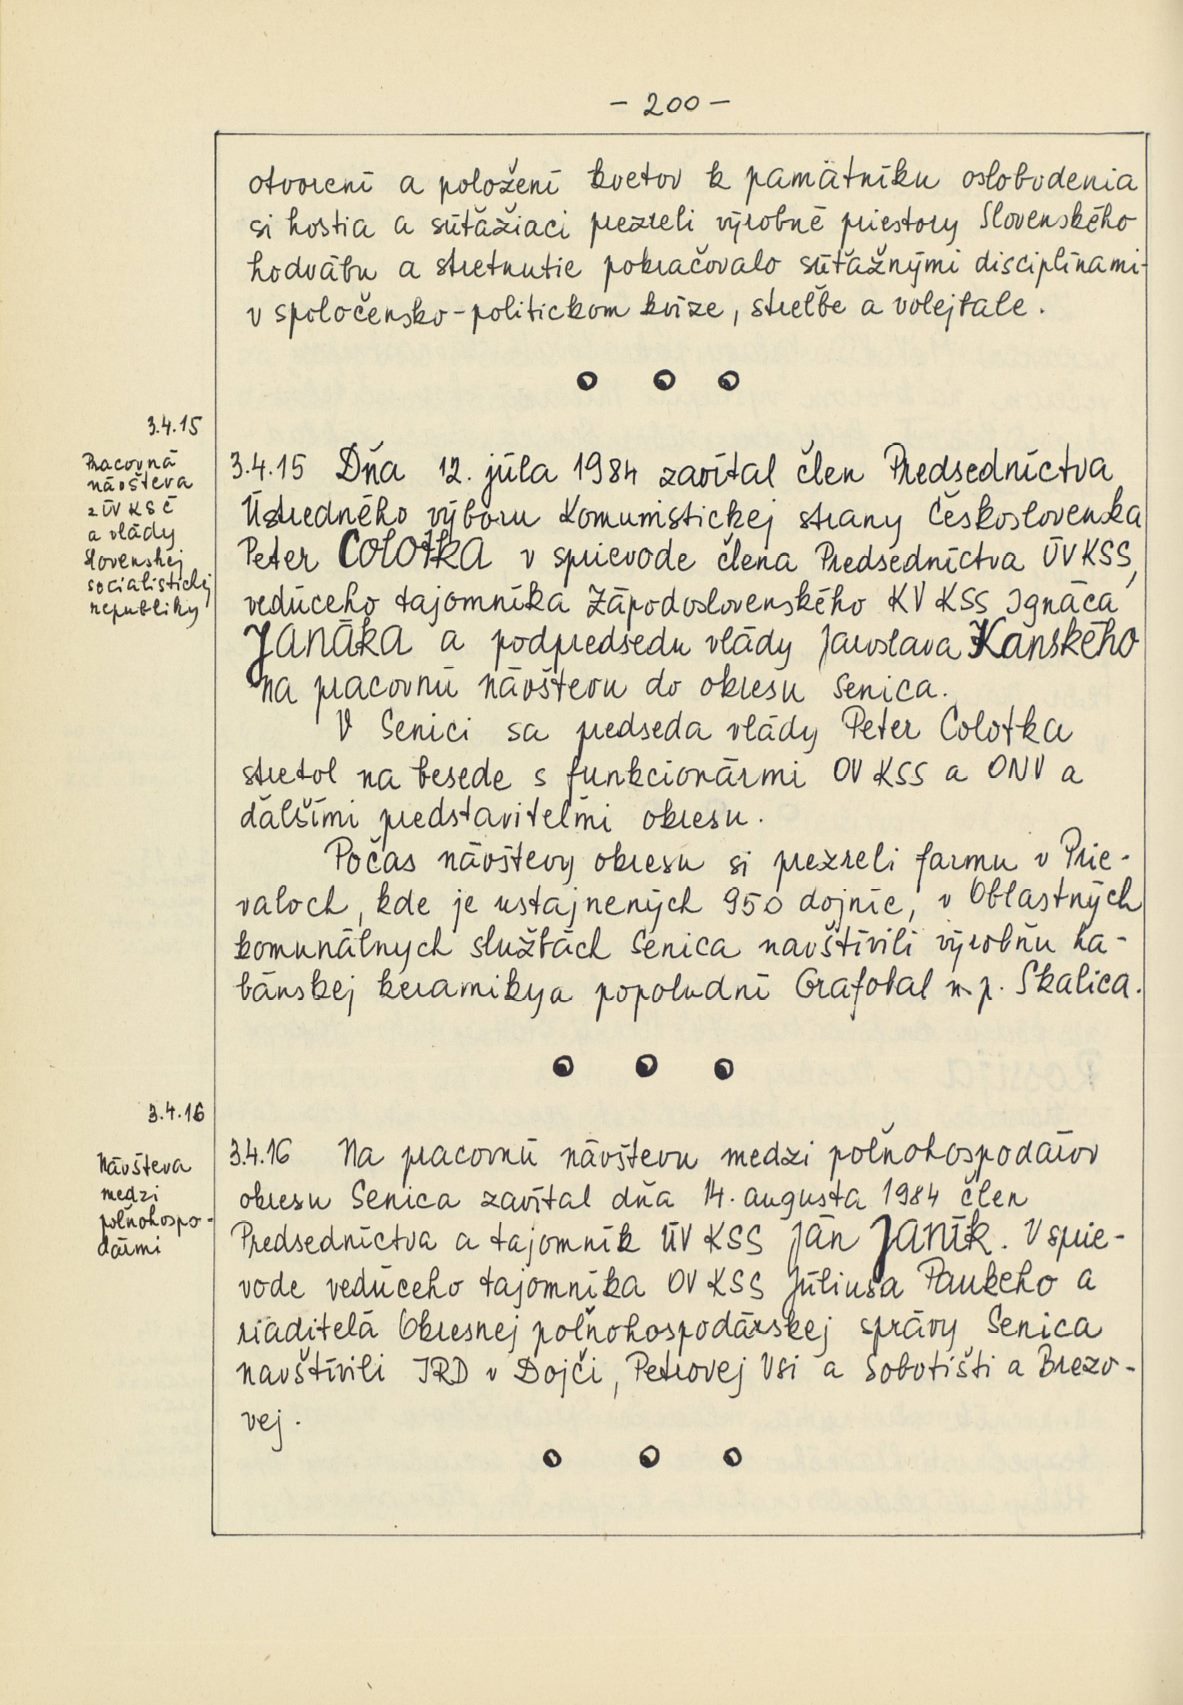 - 200 -
otvorení a položení kvetov k pamätníku oslobodenia
si hostia a súťažiaci prezreli výrobné priestory Slovenského
hodvábu a stretnutie pokračovalo súťažnými disciplínami-
v spoločensko-politickom kvíze, streľbe a volejbale.
3.4.15
Pracovná
návšteva
z ÚV KSČ
a vlády
Slovenskej
socialistickej
republiky
3.4.15 Dňa 12. júla 1984 zavítal člen Predsedníctva
Ústredného výboru Komunistickej strany Československa
Peter COLOTKA v sprievode člena Predsedníctva ÚV KSS,
vedúceho tajomníka Západoslovenského KV KSS Ignáca
JANÁKA a podpredsedu vlády Jaroslava Kanského
na pracovnú návštevu do okresu Senica.
V Senici sa predseda vlády Peter Colotka
stretol na besede s funkcionármi OV KSS a ONV a
ďalšími predstaviteľmi okresu.
Počas návštevy okresu si prezreli farmu v Prie-
valoch, kde je ustajnených 950 dojníc, v Oblastných
komunálnych službách Senica navštívili výrobňu ha-
bánskej keramiky a popoludní Grafobal n. p. Skalica.
3.4.16
Návšteva
medzi
poľnohospo-
dármi
3.4.16 Na pracovnú návštevu medzi poľnohospodárov
okresu Senica zavítal dňa 14. augusta 1984 člen
Predsedníctva a tajomník ÚV KSS Ján JANÍK. V sprie-
vode vedúceho tajomníka OV KSS Júliusa Paukeho a
riaditeľa Okresnej poľnohospodárskej správy Senica
navštívili JRD v Dojči, Petrovej Vsi a Sobotišti a Brezo-
vej.